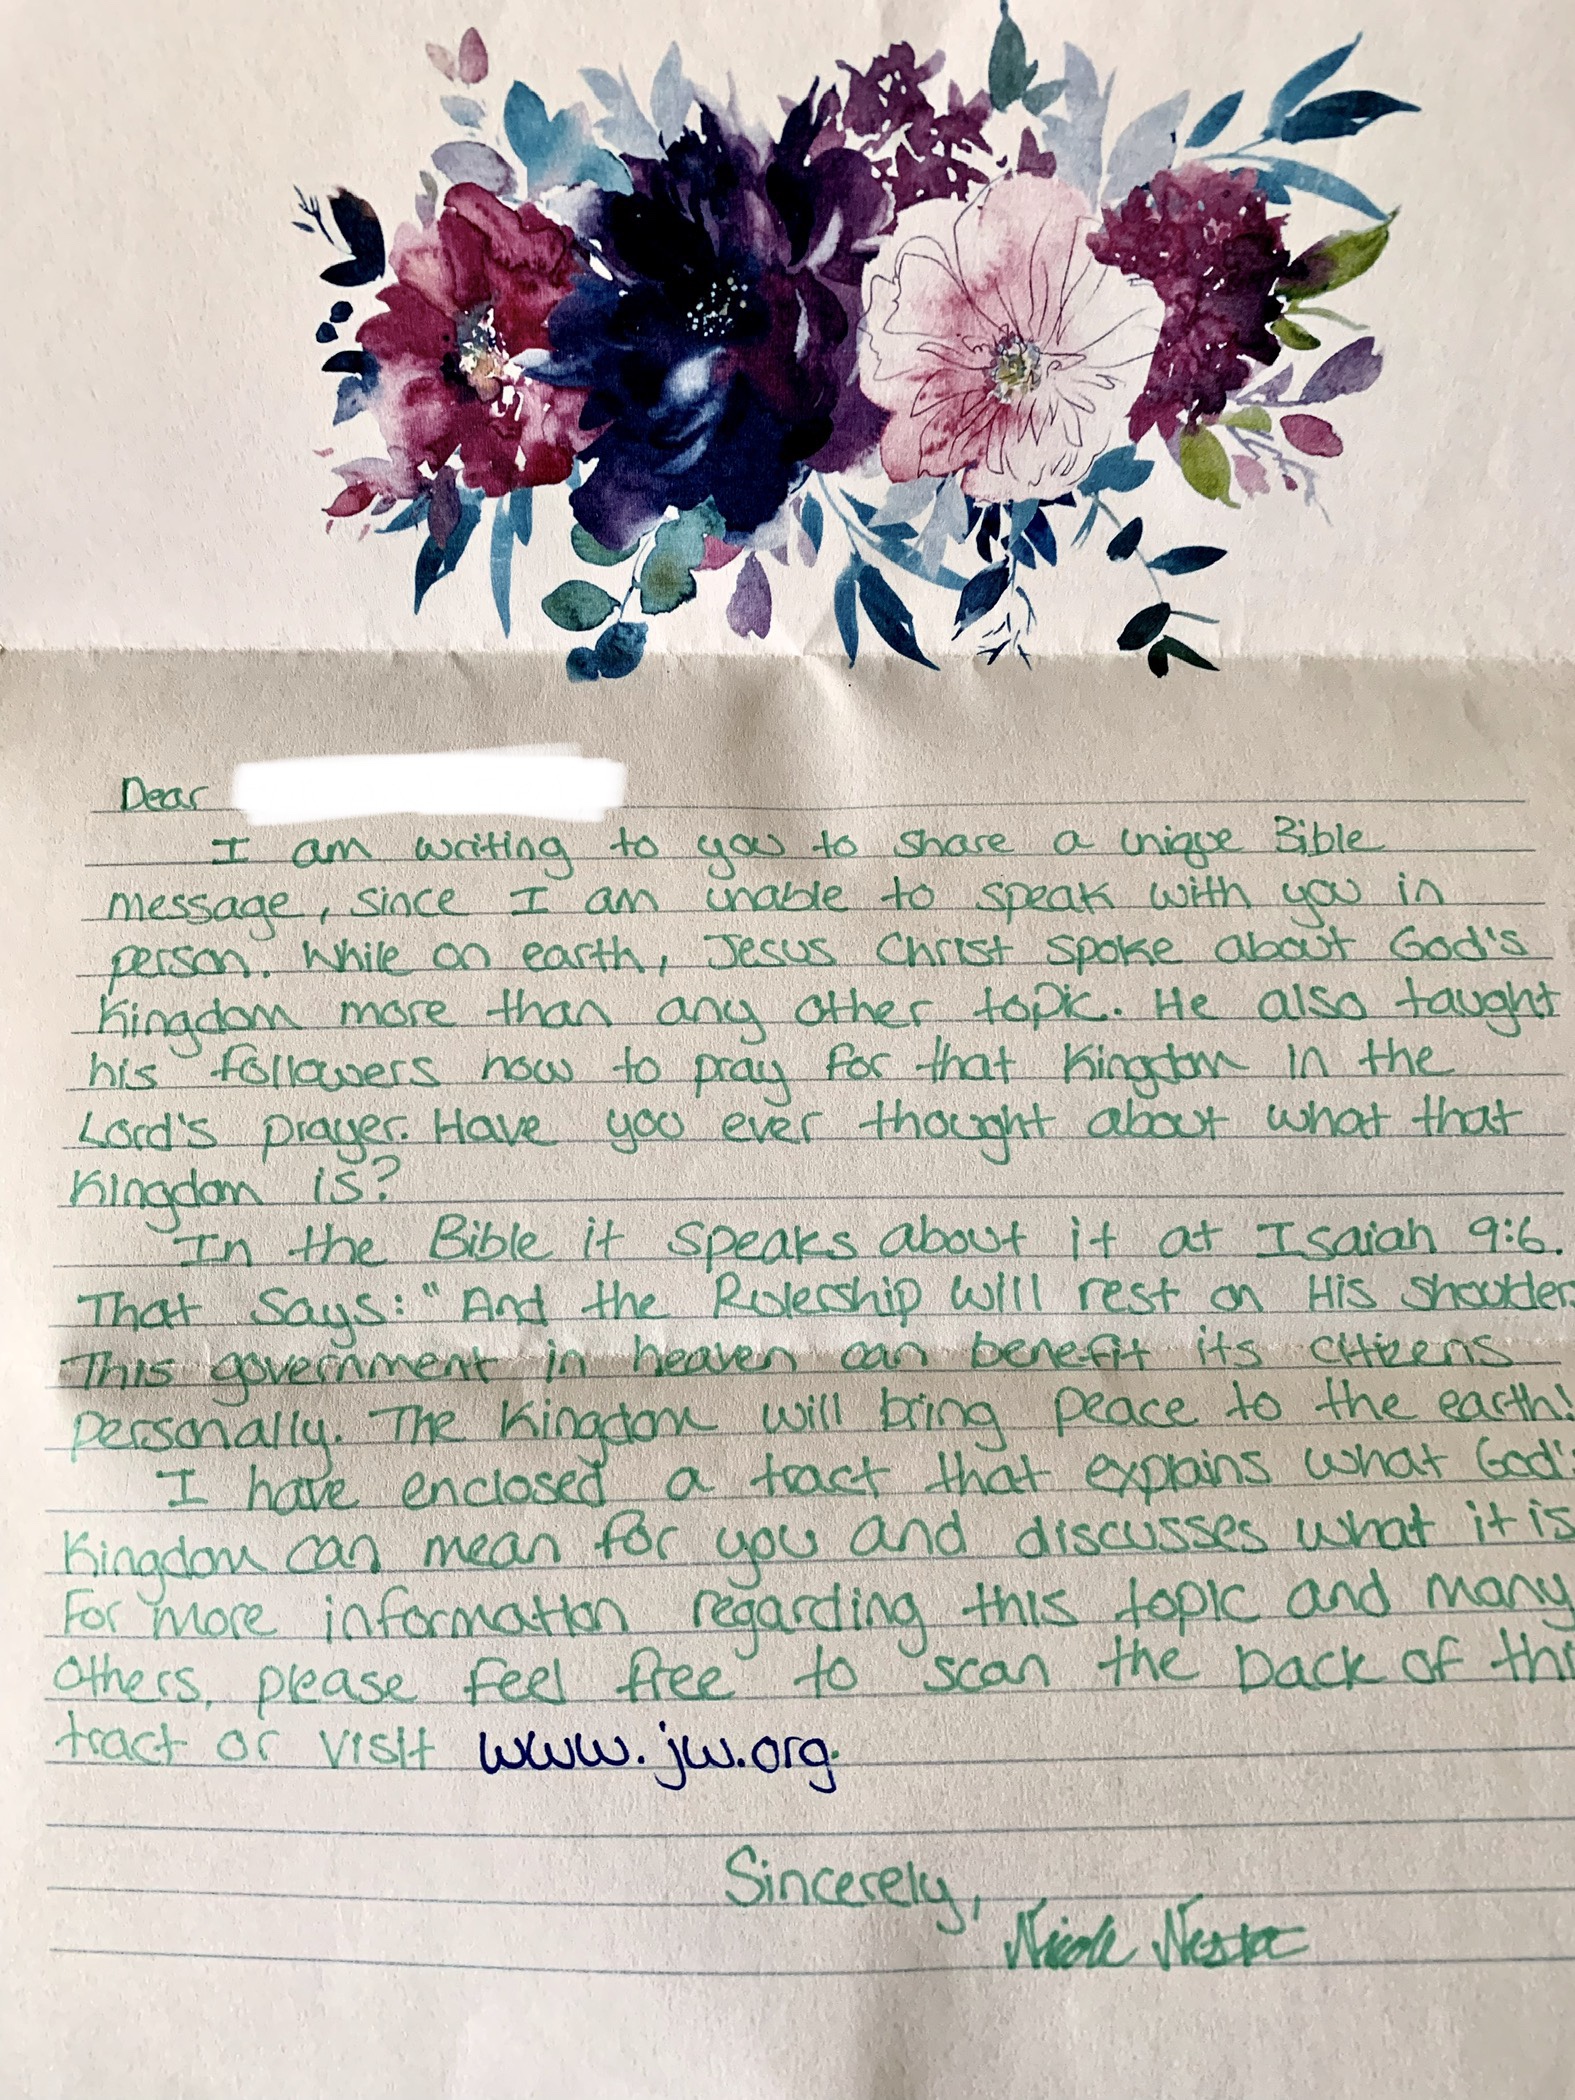 Dear
I am writing to you to share a unique Bible
message, since I am unable to speak with you in
person. While on earth, Jesus Christ spoke about God's
Kingdom more than any other topic. He also taught
his followers how to pray for that Kingdom in the
Lord's prayer. Have you ever thought about what that
Kingdom is?
In the Bible it speaks about it at Isaiah 9:6.
That says: "And the Rulership will rest on His shoulder.
This government in heaven can benefit its citizens
personally. The Kingdom will bring peace to the earth!
I have enclosed a tract that explains what God's
Kingdom can mean for you and discusses what it is
For more information regarding this topic and many
others, please feel free to scan the back of thi
tract or visit www.jw.org.
Sincerely,
Nicole